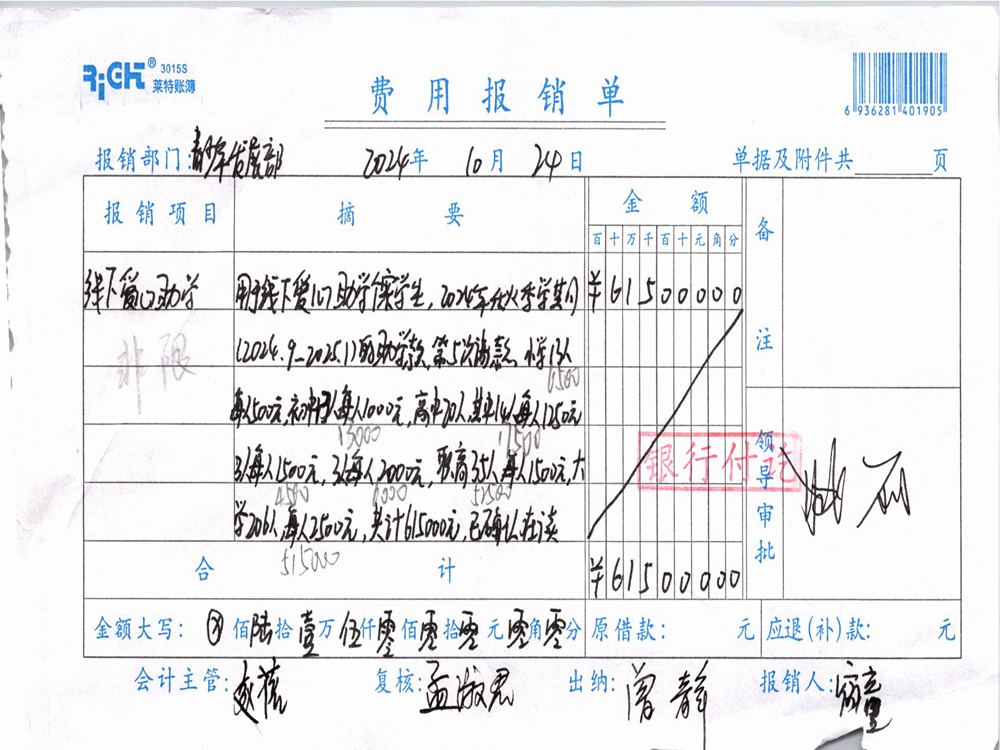 RiGHT® 3015S
莱特账簿
费用报销单
6 936281 401905
报销部门:青少年发展部 2024年 10月 24日 单据及附件共 页
报销项目 摘要 金额 备注
百十万千百十元角分
线下爱心助学 用于线下爱心助学 学生,2024年秋季学期 ¥61500000
非限
(2024.9-2025.1)的助学款,第5次 款,小学13人
6500
每人500元,初中13人每人1000元,高中20人,其中14人每人1250元
13000 17500
3人每人1500元,3人每人2000元,职高35人每人1500元,大
4500 6000 52500
学206人,每人2500元,共计615000元,已确认在读
515000
银行付讫
领导审批
合计 ¥61500000
金额大写: ⊗佰陆拾壹万伍仟零佰零拾零元零角零分 原借款: 元 应退(补)款: 元
会计主管: 复核:孟淑君 出纳:曾静 报销人: